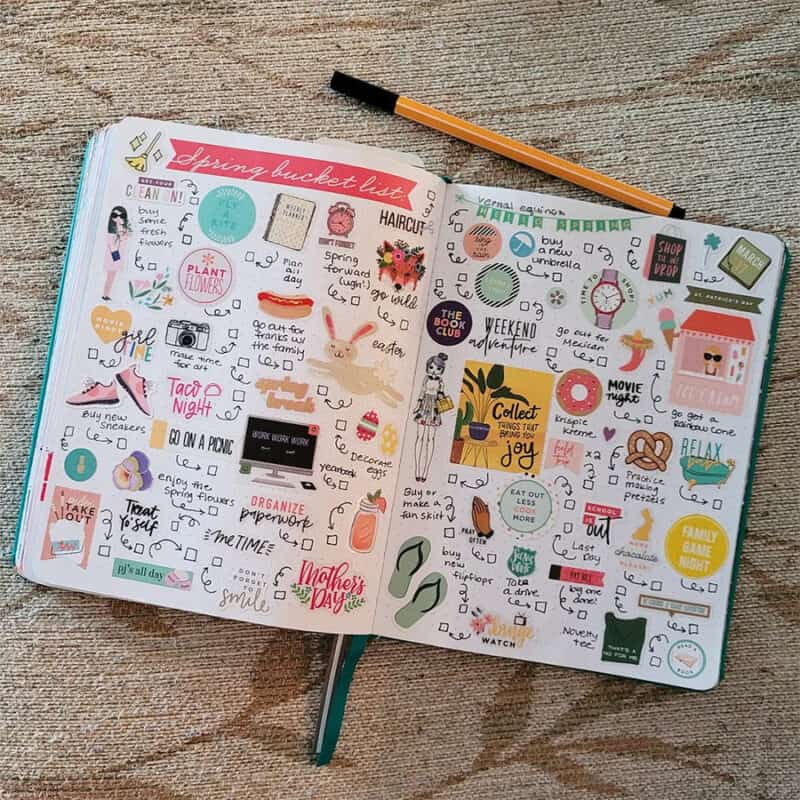 Spring bucket list
CLEAN ON!
buy
some
fresh
flowers
FLY
A
KITE
WEEKLY
PLANNER
Plan
all
day
DON'T FORGET
Spring
forward
(ugh!)
HAIRCUT
go wild
PLANT
FLOWERS
MOVIE
girl
TIME
make time
for art
go out for
franks w/
the family
easter
Buy new
sneakers
Taco
NIGHT
spring
break
GO ON A PICNIC
WORK WORK WORK
Decorate
eggs
yearbook
enjoy the
Spring flowers
TAKE
OUT
Treat
Yo'self
ORGANIZE
paperwork
me TIME
PJ's all day
DON'T
FORGET
TO
smile
Mother's
DAY
vernal equinox
HELLO SPRING
sing
rain
buy
a new
umbrella
TIME TO SHOP!
SHOP
DROP
MARCH
ST. PATRICK'S DAY
YUM
THE
BOOK
CLUB
WEEKEND
adventure
go out for
Mexican
ICE CREAM
go get a
Rainbow cone
Collect
THINGS THAT
BRING YOU
joy
Krispie
Kreme
MOVIE
night
x2
Practice
making
pretzels
RELAX
Buy or
make a
fun skirt
EAT OUT
LESS
COOK
MORE
PRAY
OFTEN
SCHOOL
IS
out
Last
Day
chocolate
PLEASE
FAMILY
GAME
NIGHT
buy
new
flipflops
Take
a drive
big one
done!
binge
WATCH
Novelty
tee
THAT'S A
NO FOR ME
READ A
BOOK